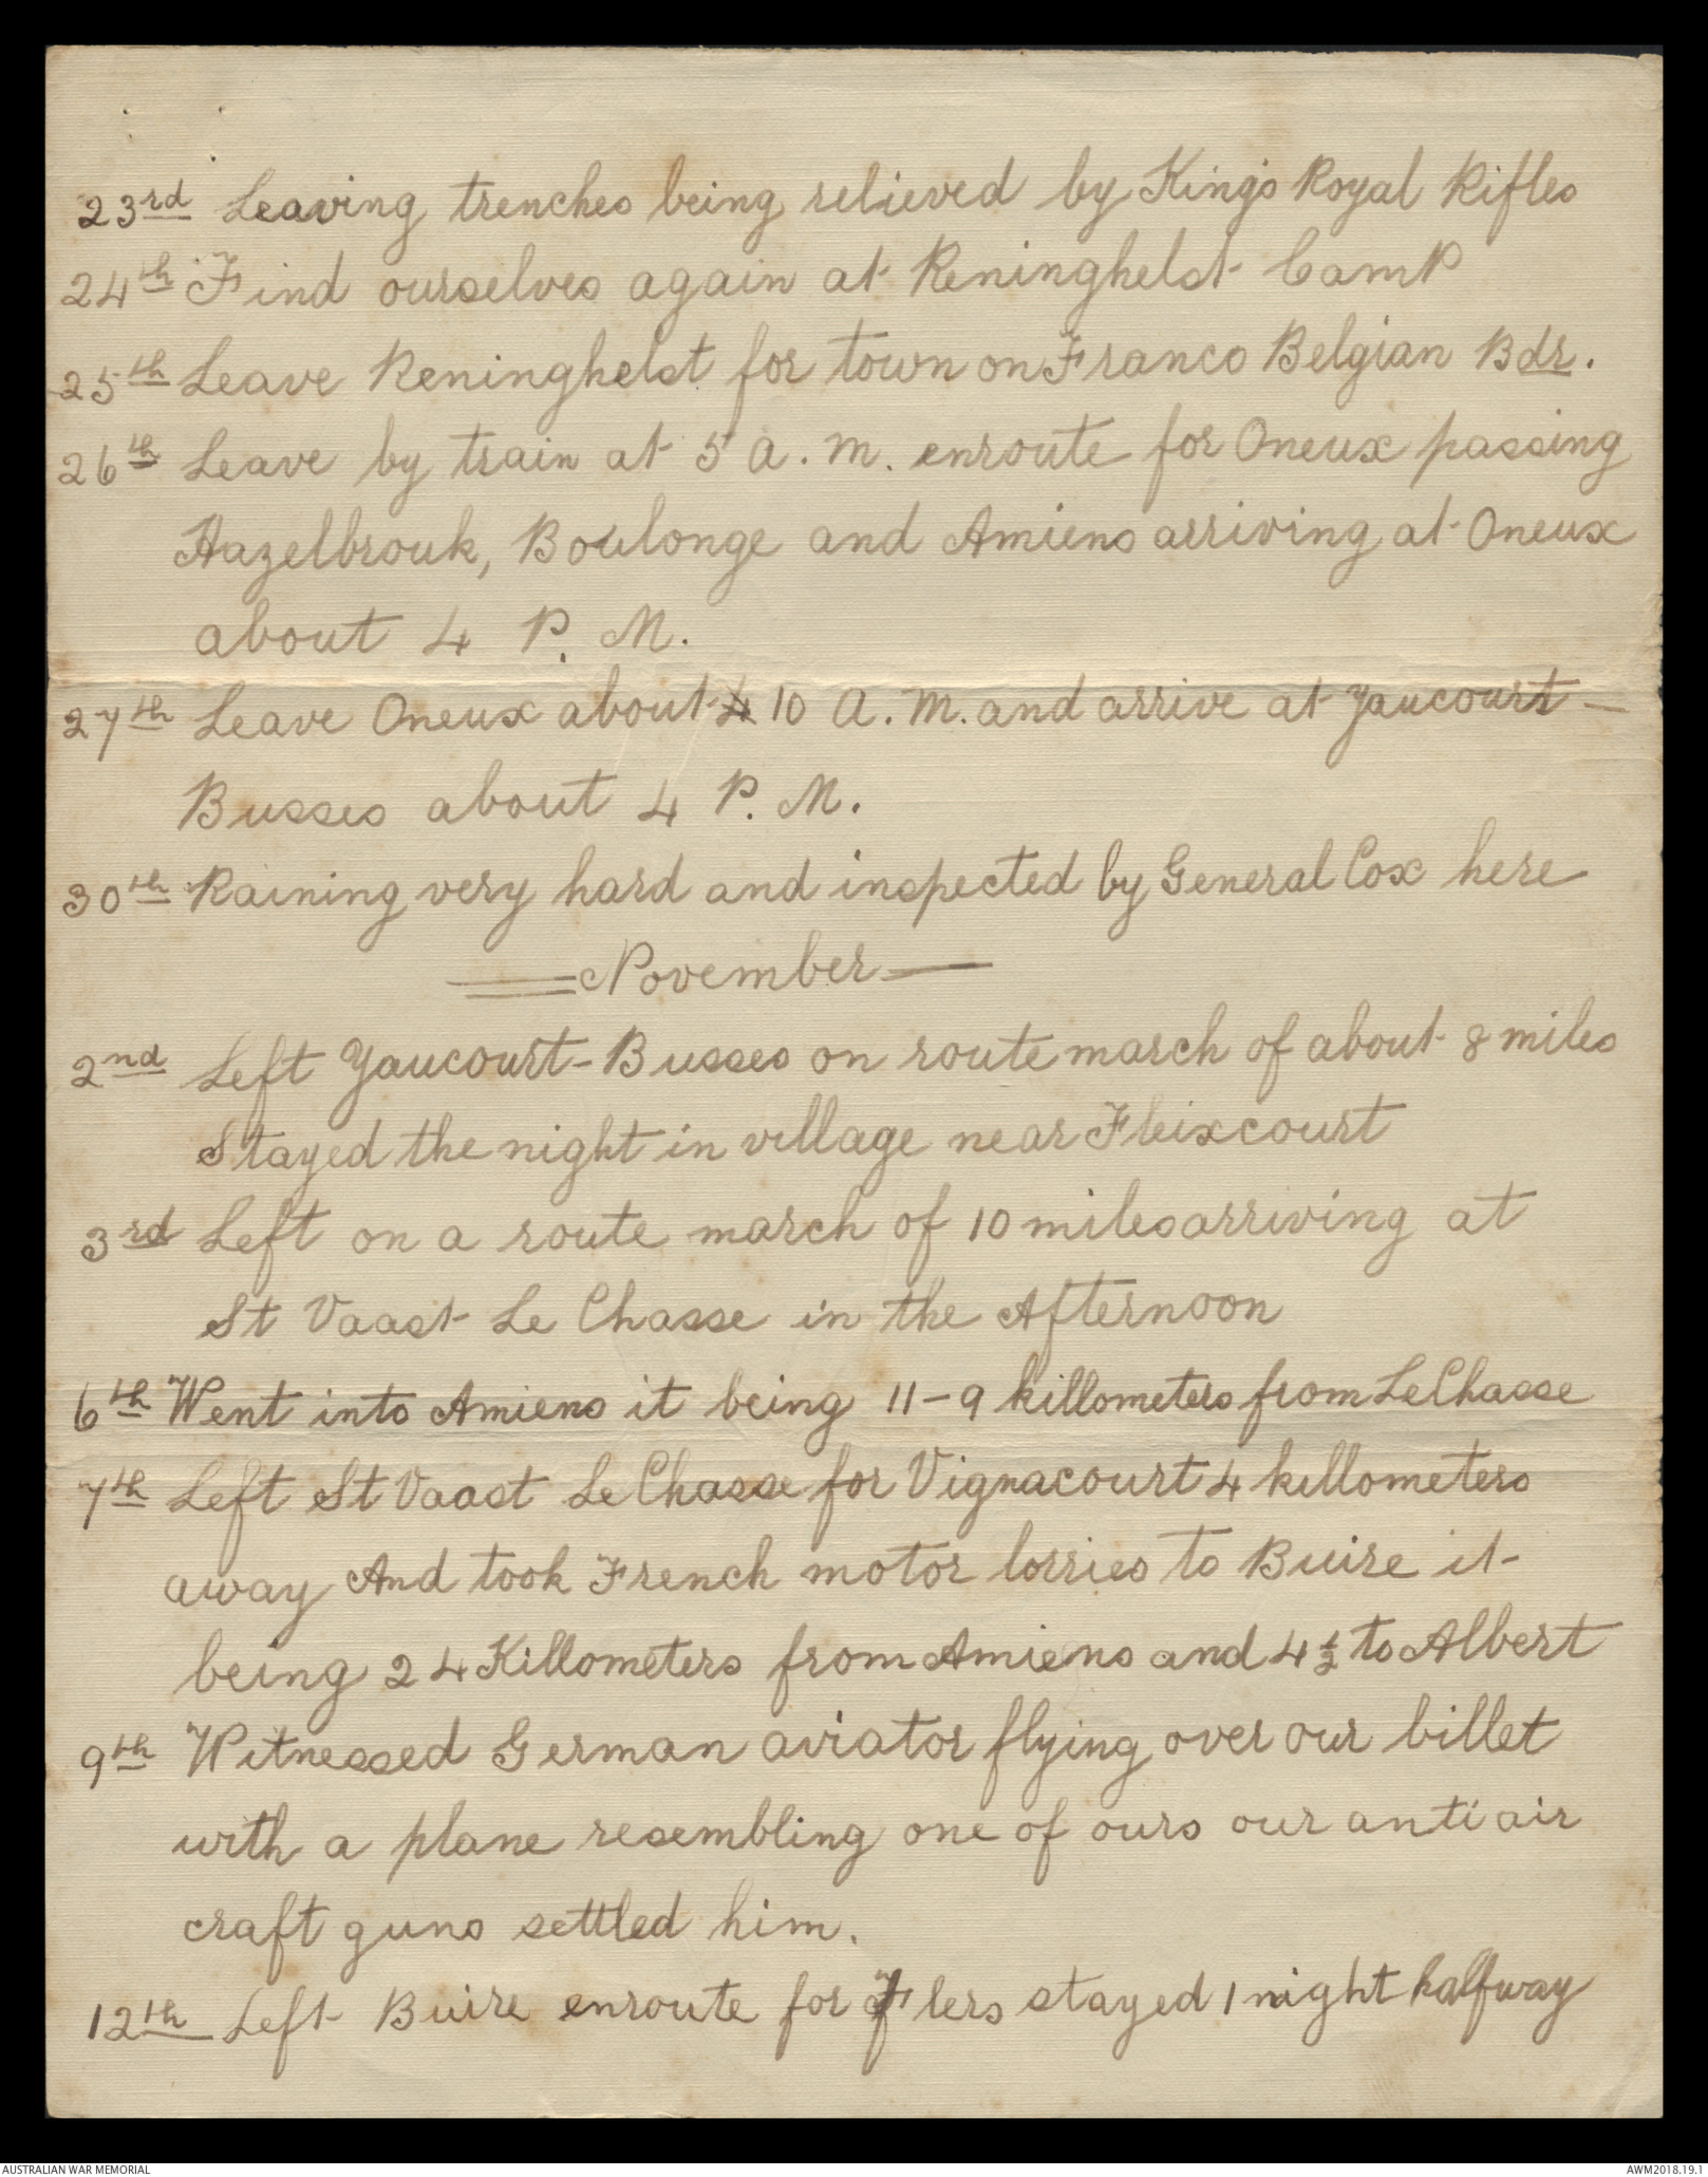 23rd Leaving trenches being relieved by King's Royal Rifles
24th Find ourselves again at Reninghelst Camp
25th Leave Reninghelst for town on Franco Belgian Bdr.
26th Leave by train at 5 A.M. enroute for Oneux passing
Hazelbrouk, Boulonge and Amiens arriving at Oneux
about 4 P.M.
27th Leave Oneux about 4 10 A.M. and arrive at Yaucourt-
Busses about 4 P.M.
30th Raining very hard and inspected by General Cox here
November
2nd Left Yaucourt-Busses on route march of about 8 miles
Stayed the night in village near Fleixcourt
3rd Left on a route march of 10 miles arriving at
St Vaast Le Chasse in the Afternoon
6th Went into Amiens it being 11-9 killometers from LeChasse
7th Left St Vaast LeChasse for Vignacourt 4 killometers
away And took French motor lorries to Buire it
being 24 Killometers from Amiens and 4½ to Albert
9th Witnessed German aviator flying over our billet
with a plane resembling one of ours our anti air
craft guns settled him.
12th Left Buire enroute for Flers stayed 1 night halfway
AUSTRALIAN WAR MEMORIAL
AWM2018.19.1